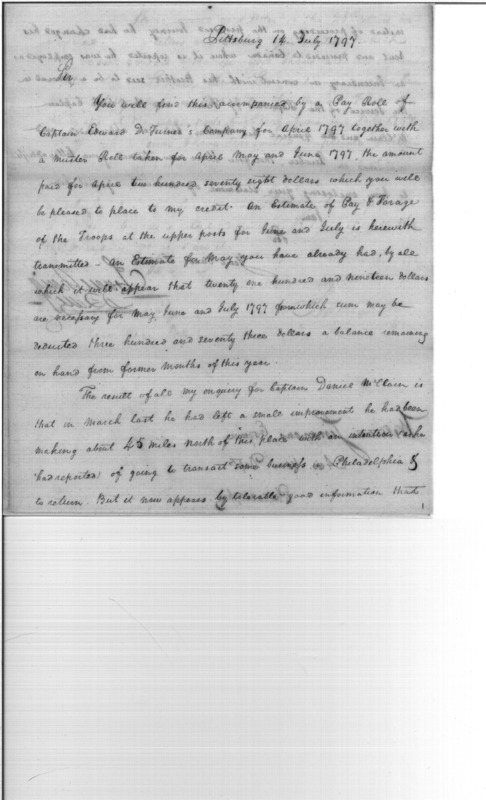 Pittsburg 14 July 1797.
Sir
You will find this accompanied by a Pay Roll of
Captain Edward D. Turner's Company for April 1797 together with
a muster Roll taken for April May and June 1797, the amount
paid for April two hundred seventy eight dollars which you will
be pleased to place to my credit - An Estimate of Pay & Forage
of the Troops at the upper posts for June and July is herewith
transmitted - An Estimate for May you have already had, by all
which it will appear that twenty one hundred and nineteen dollars
are necessary for May, June and July 1797 from which sum may be
deducted three hundred and seventy three dollars a balance remaining
on hand from former months of this year.
The result of all my enquiry for Captain Daniel McClain is
that in March last he had left a small improvement he had been
making about 45 miles north of this place with an intention (as he
had reported) of going to transact some business in Philadelphia &
to return. But it now appears by tolerable good information that